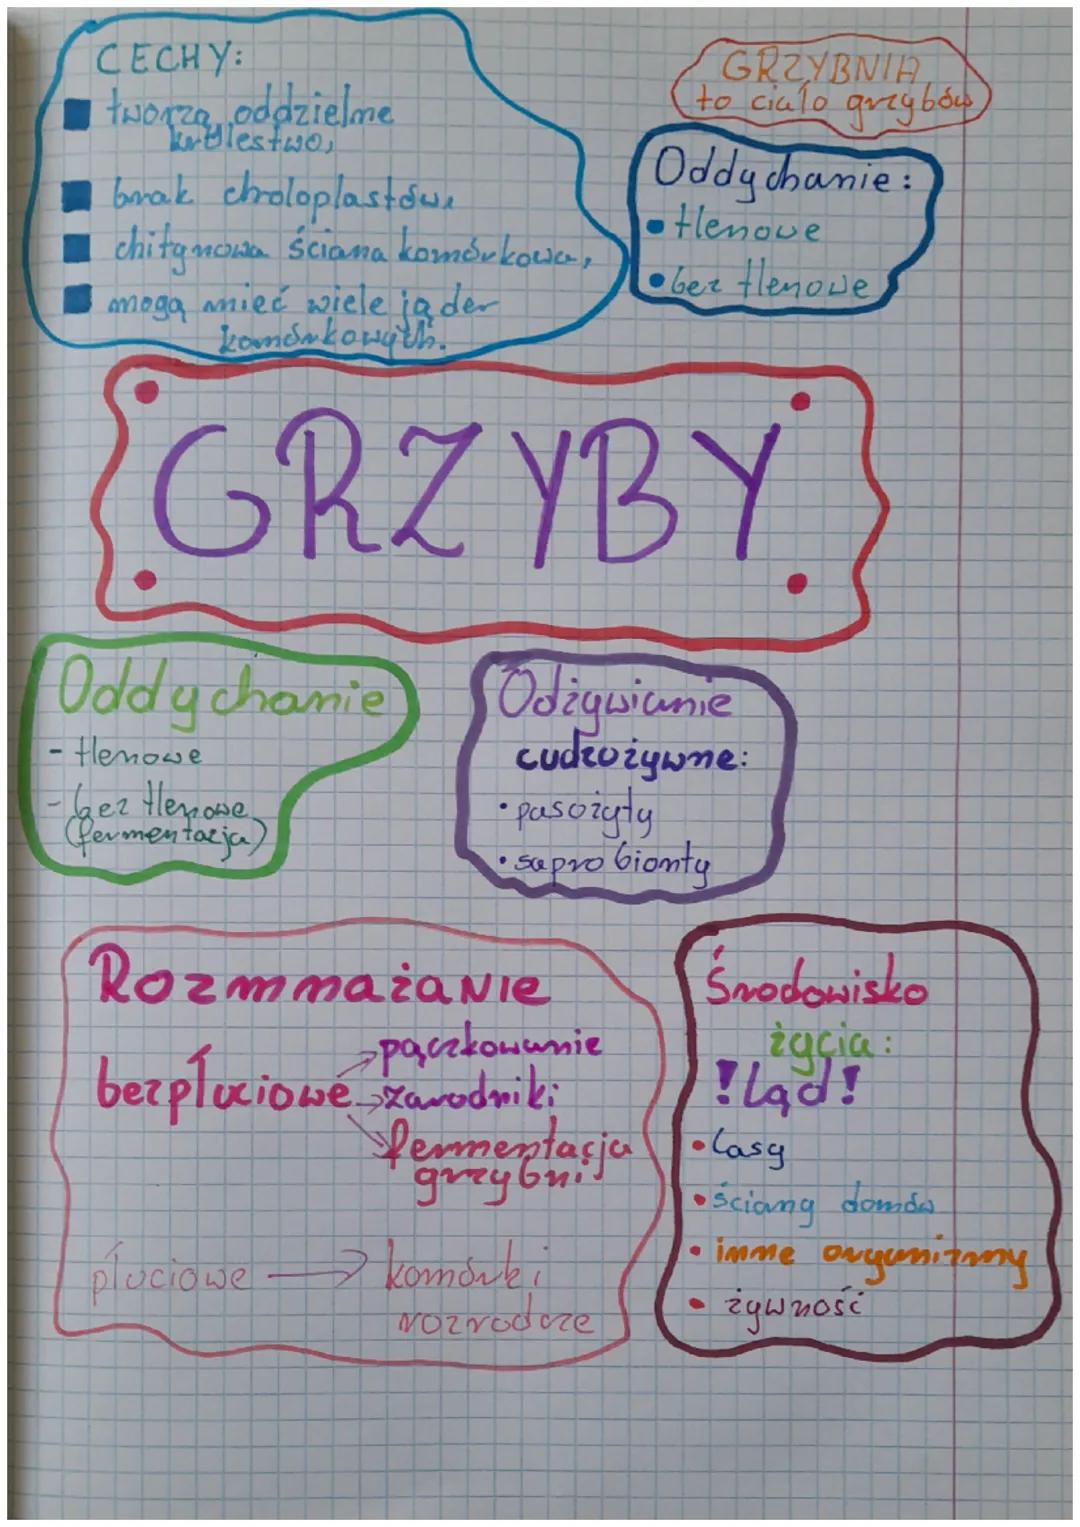 CECHY:
tworzą oddzielne
królestwo,
brak chroloplastów,
chitynowa ściana komórkowa,
mogą mieć wiele jąder
komórkowych.
GRZYBNIA
to ciało grzybów
Oddychanie:
• tlenowe
• bez tlenowe
GRZYBY
Oddychanie
- tlenowe
- bez tlenowe
(fermentacja)
Odżywianie
cudzożywne:
• pasożyty
• saprobionty
Rozmnażanie
bezpłuciowe
→ pączkowanie
→ zarodniki
→ fermentacja
grzybni
płuciowe → komórki
rozrodcze
Środowisko
życia:
! Ląd !
• lasy
• ściany domów
• inne organizmy
• żywność